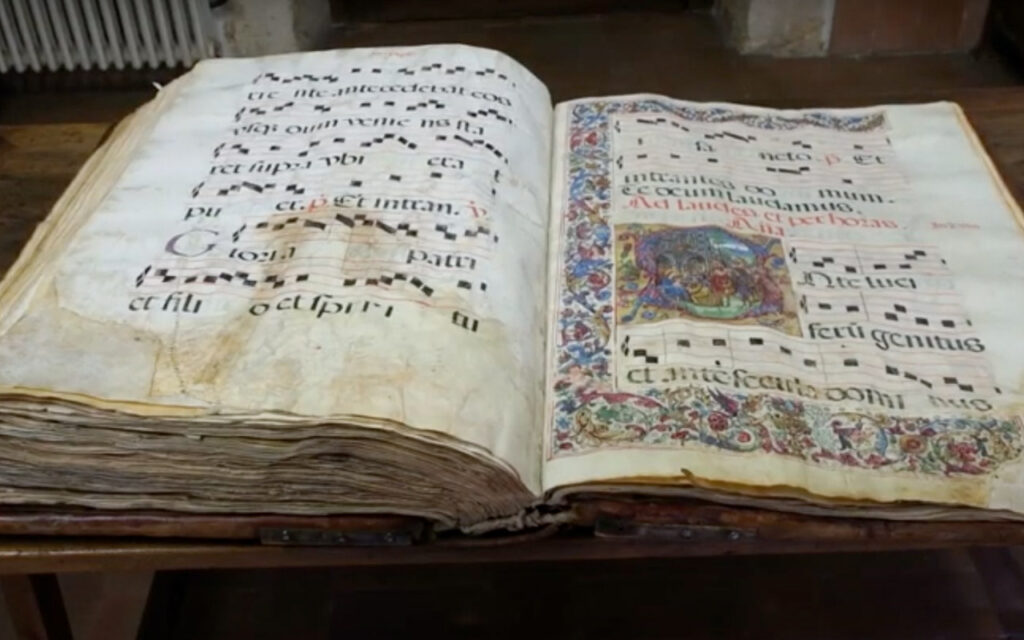 tre  nte antecedebat eos
usq3 dum venie ns sta
ret supra vbi era t
pu er. p. Et intran. v.
Gloria patri
et fili o et spiri tui
sa neto. p. Et
intrantes do mum.
Te deum laudamus.
Ad laudes et per horas.
Aña
Ante luci
ferū genitus
et ante secula domi nus